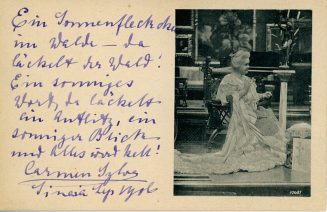 Ein Sonnenfleckchen
im Walde – da
lächelt der Wald!
Ein sonniges
Wort, da lächelt
ein Antlitz, ein
sonniger Blick
und Alles wird hell!
Carmen Sylva
Sinaia Sep 1906